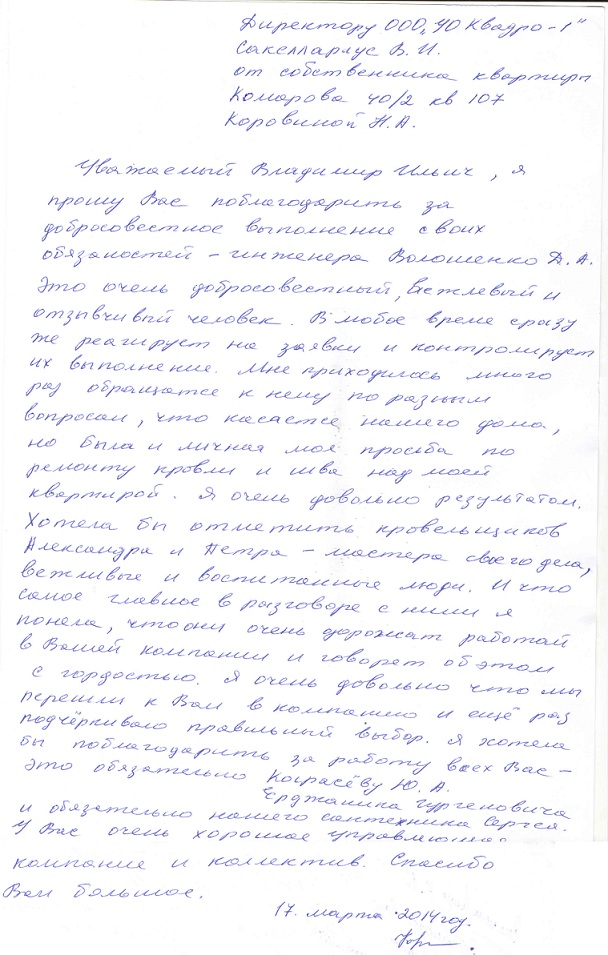 Директору ООО "УО Квадро-1"
Сакеллариус В. И.
от собственника квартиры
Комарова 40/2 кв 107
Коровиной Н.А.
Уважаемый Владимир Ильич, я
прошу Вас поблагодарить за
добросовестное выполнение своих
обязаностей - инженера Волошенко Д.А.
Это очень добросовестный, вежлевый и
отзывчивый человек. В любое время сразу
же реагирует на заявки и контролирует
их выполнение. Мне приходилось много
раз обращатся к нему по разным
вопросам, что касается нашего дома,
но была и личная моя просьба по
ремонту кровли и шва над моей
квартирой. Я очень довольно результатом.
Хотела бы отметить кровельщиков
Александра и Петра - мастера своего дела,
вежливые и воспитанные люди. И что
самое главное в разговоре с ними я
поняла, что они очень дорожат работай
в Вашей компании и говорят об этом
с гордостью. Я очень довольно что мы
перешли к Вам в компанию и ещё раз
подчёркиваю правильный выбор. Я хотела
бы поблагодарить за работу всех Вас -
это обязательно Юрия
и обязательно нашего сантехника Сергея.
У Вас очень хорошая управляющая
компание и коллектив. Спасибо
Вам большое.
17. марта 2014 год.